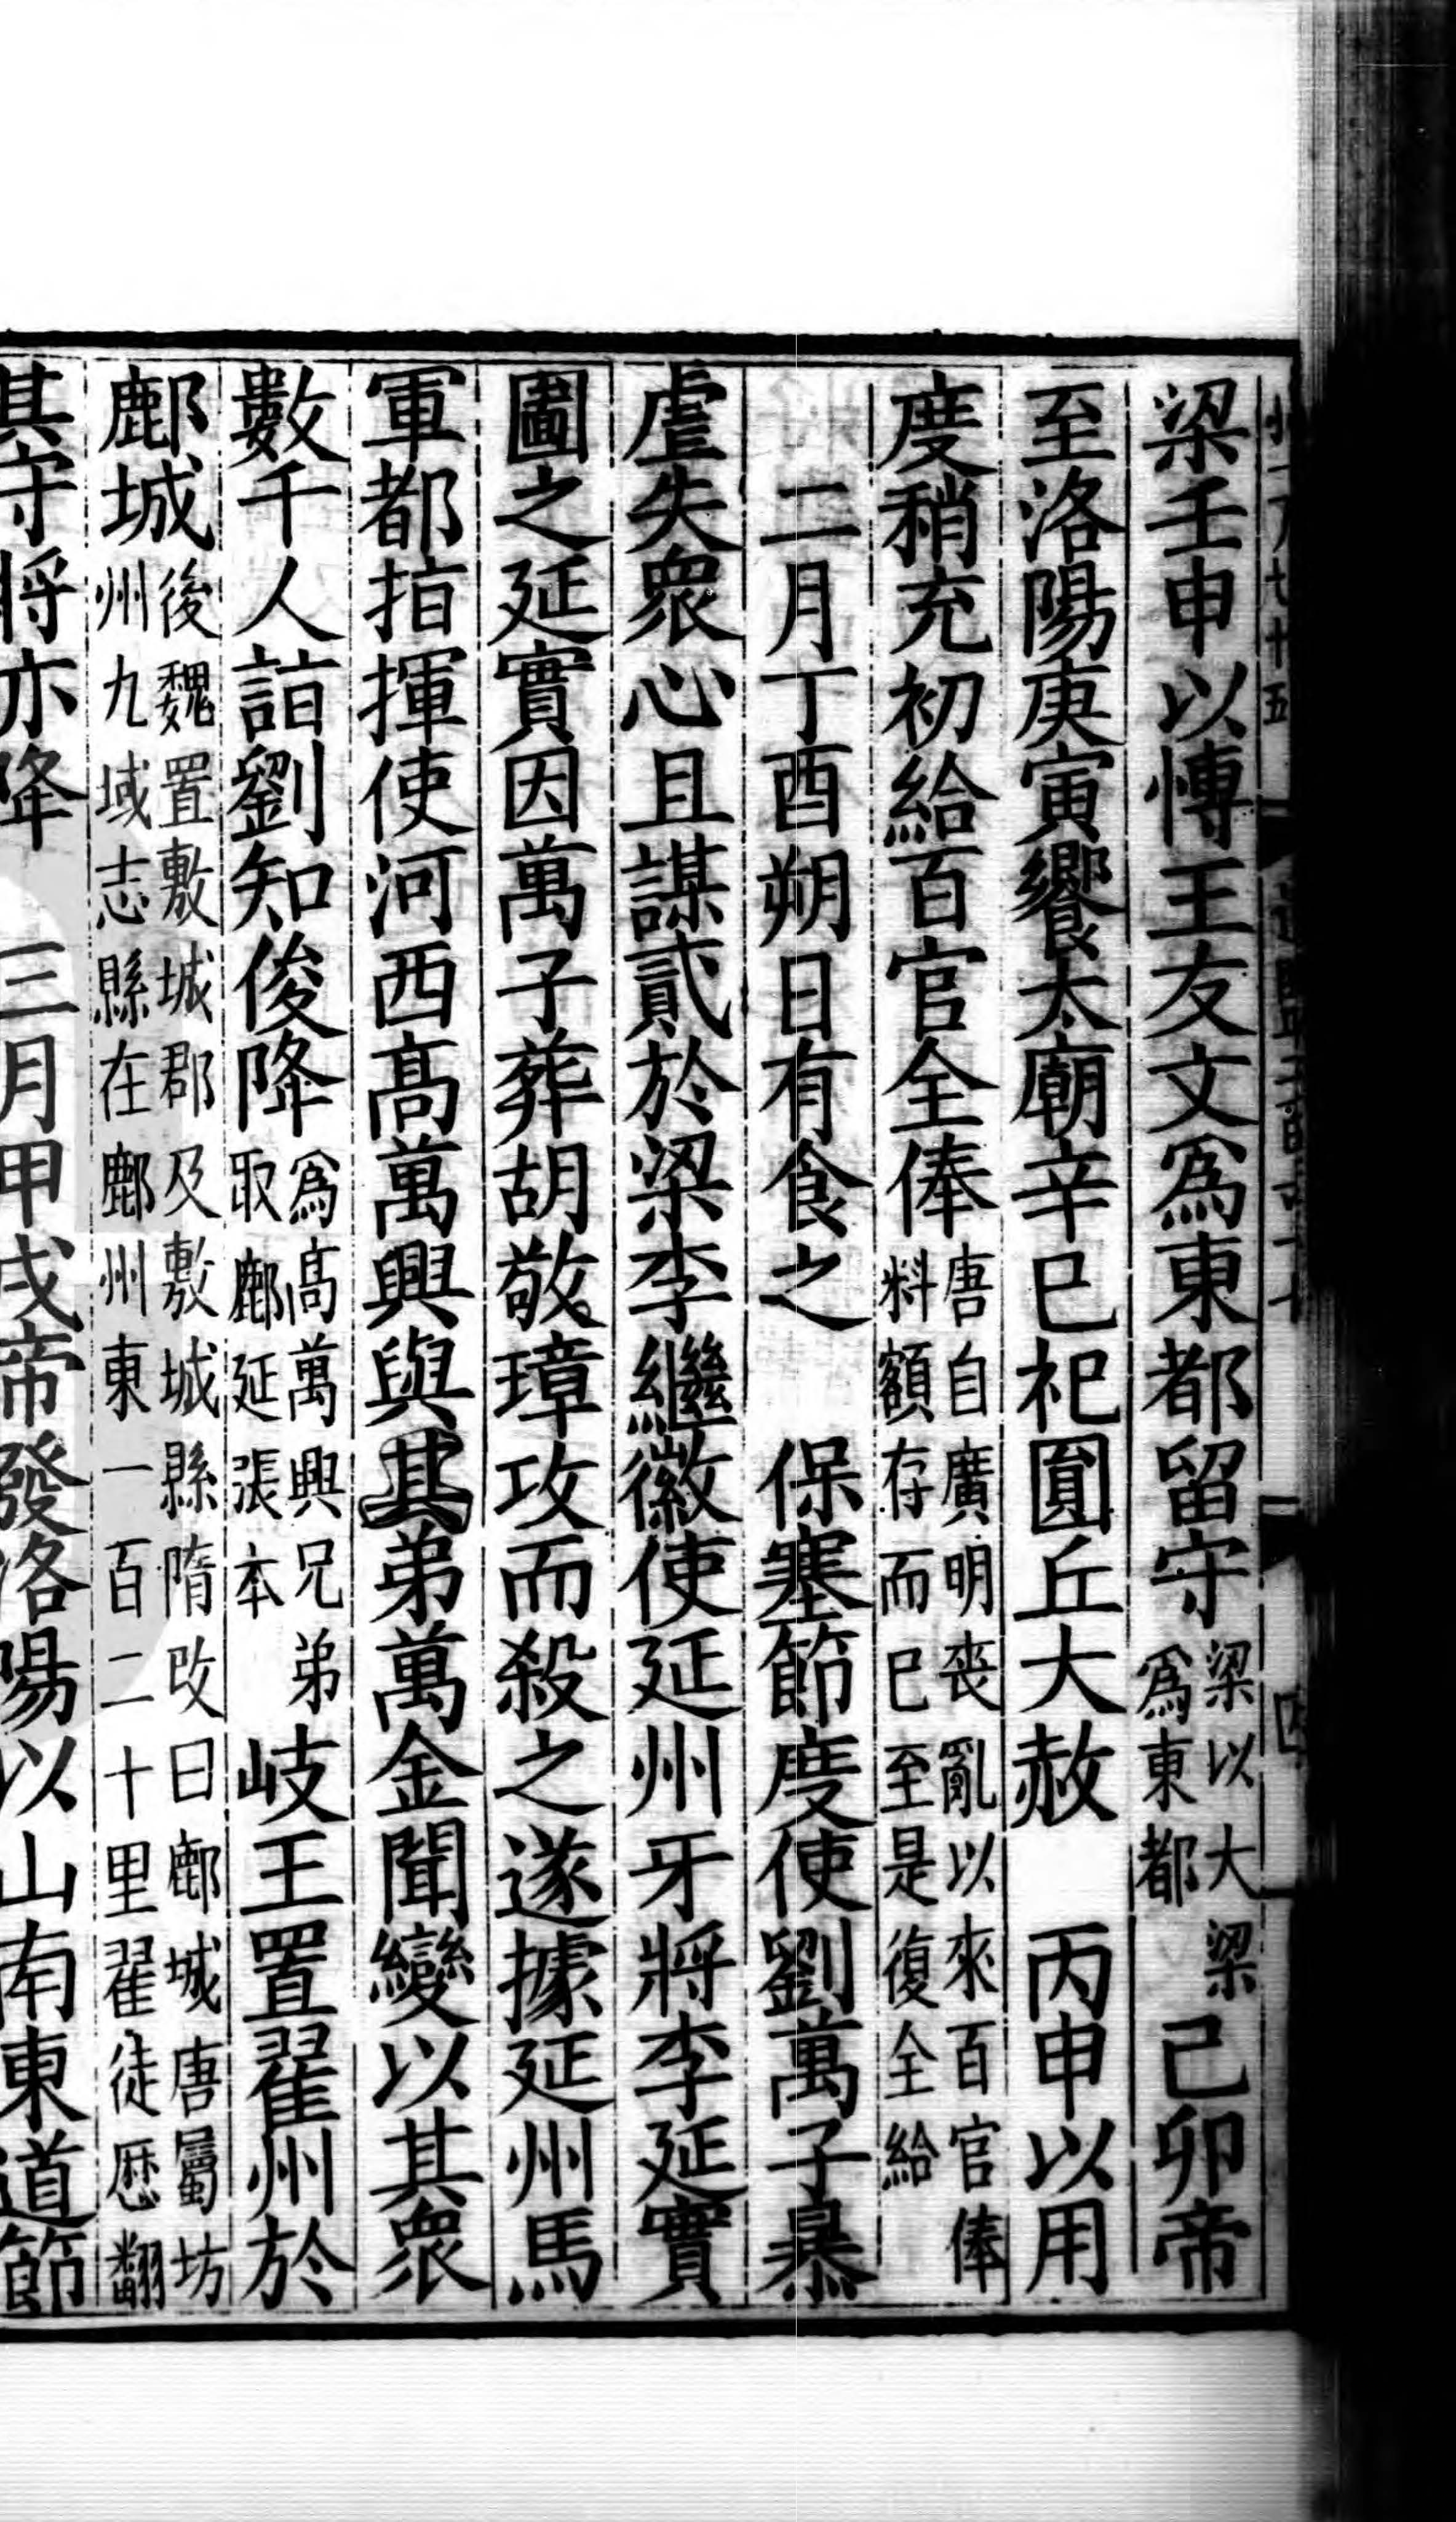 梁壬申以愽王友文爲東都留守梁以大梁爲東都己卯帝
至洛陽庚寅饗太廟辛巳祀圓丘大赦　丙申以用
度稍充初給百官全俸唐自廣明喪亂以來百官俸料額存而已至是復全給
二月丁酉朔日有食之　保塞節度使劉萬子暴
虐失衆心且謀貳於梁李繼徽使延州牙將李延實
圖之延實因萬子葬胡敬璋攻而殺之遂據延州馬
軍都指揮使河西髙萬興與其弟萬金聞變以其衆
數千人詣劉知俊降爲髙萬興兄弟取鄜延張本　岐王置翟州於
鄜城後魏置敷城郡及敷城縣隋改曰鄜城唐屬坊州九域志縣在鄜州東一百二十里翟徒歷翻
其守將亦降　三月甲戌帝發洛陽以山南東道節